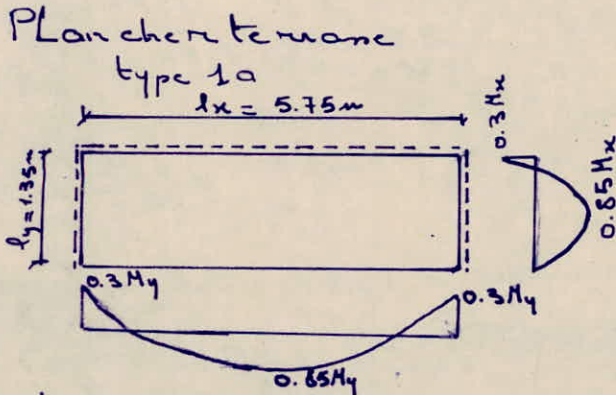 Plancher terrasse
type 1a
lx = 5.75m
ly = 1.35m
0.3 Mx
0.85 Mx
0.3 My
0.3 My
0.85 My